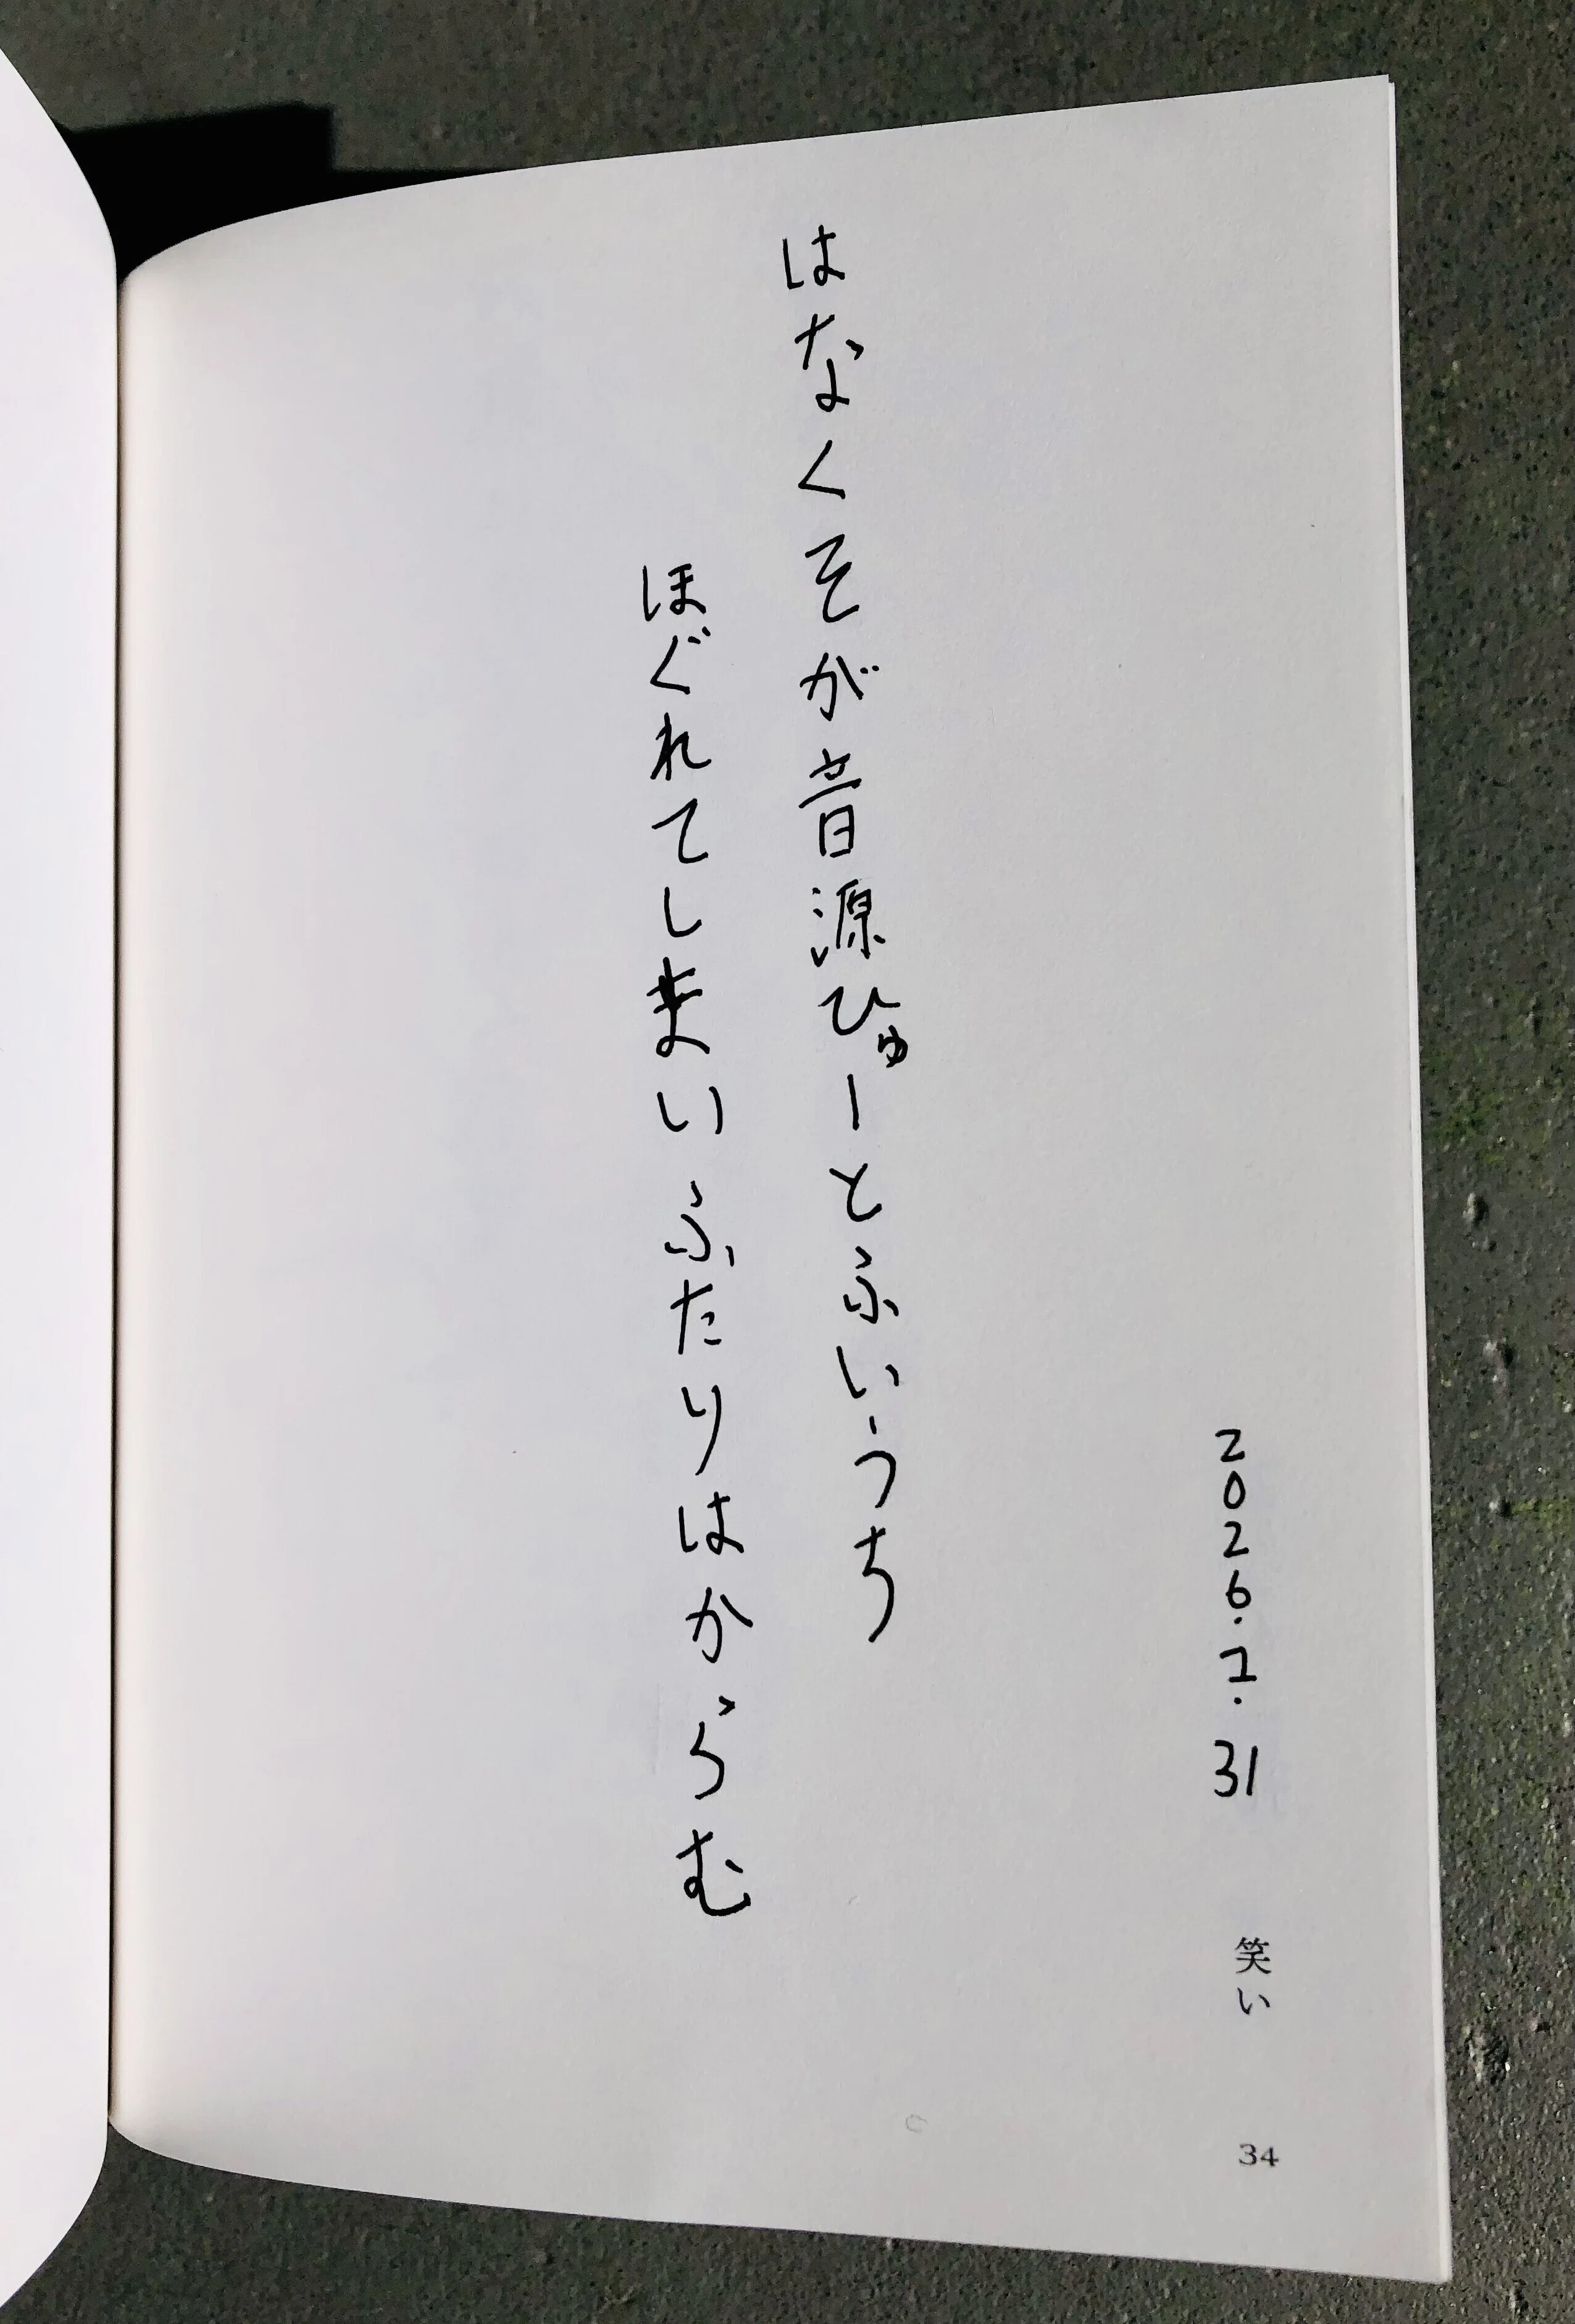 2026.1.31
はなくそが音源ひゅーとふいうち
ほぐれてしまいふたりはからむ
笑い
34